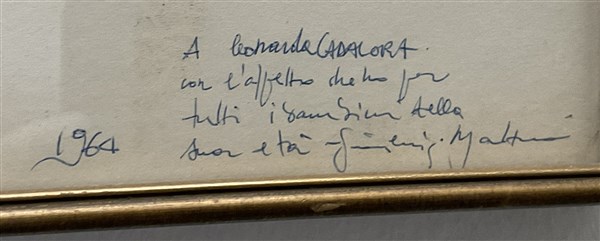 A Leonarda CADALORA.
con l'affetto che ho per
tutti i bambini della
sua età
1964